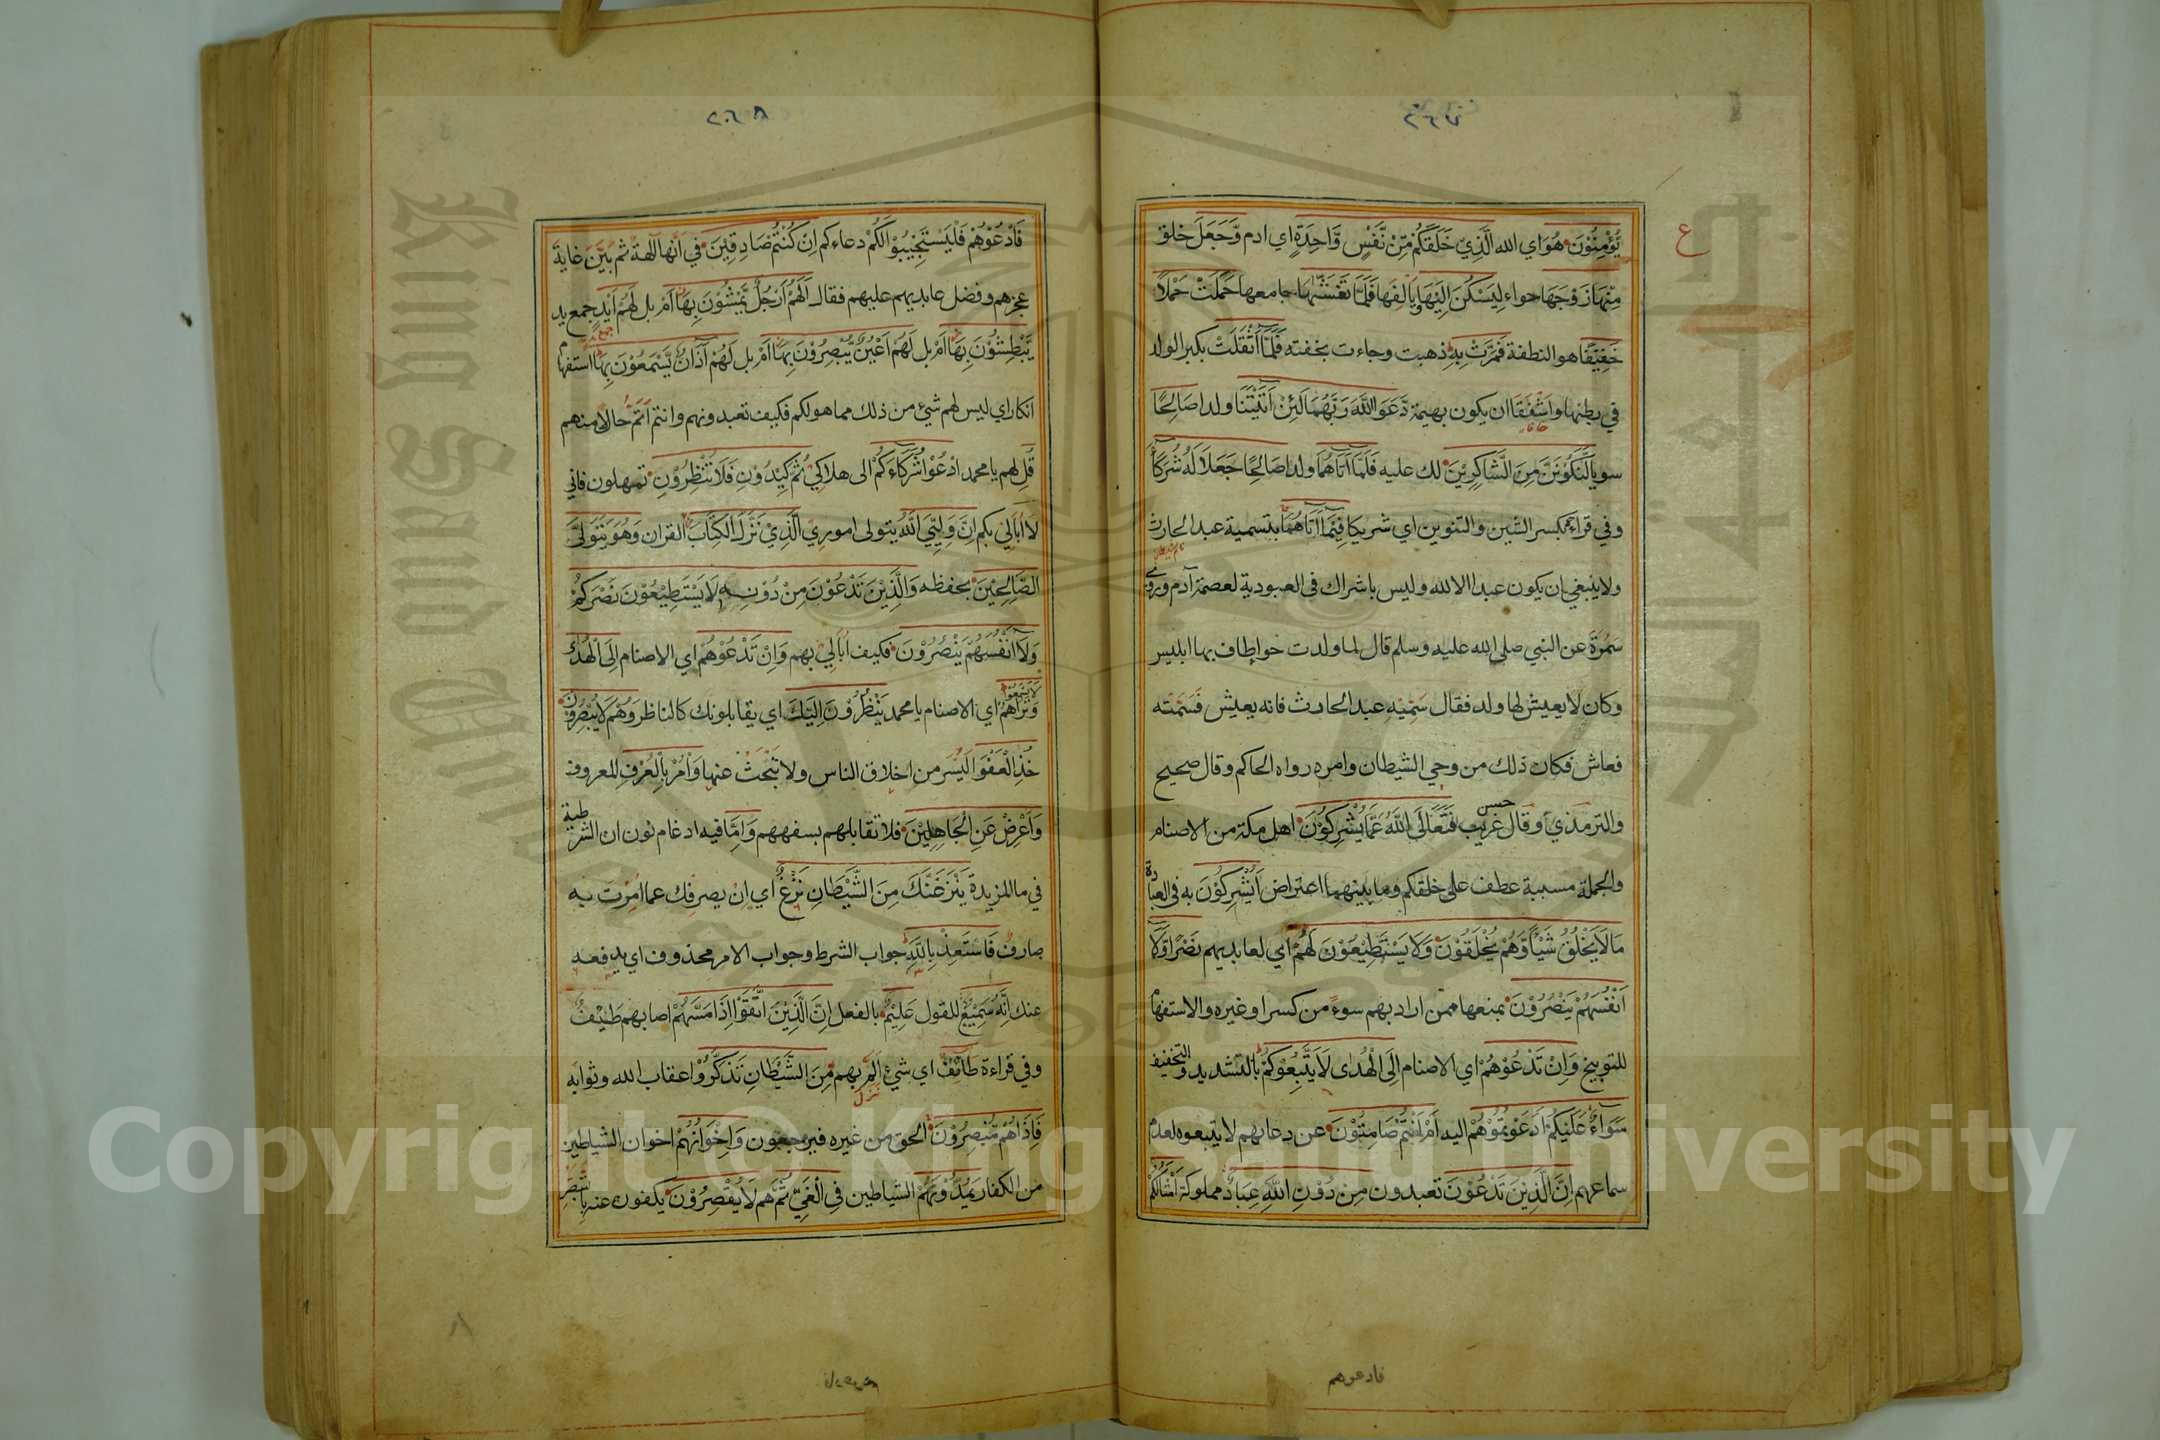 يُّؤْمِنُوْنَ هُوَ اي الله الَّذِيْ خَلَقَكُمْ مِّنْ نَّفْسٍ وَّاحِدَةٍ اي ادم وَّجَعَلَ خلق
مِنْهَا زَوْجَهَا حواء لِيَسْكُنَ اِلَيْهَا ويالفها فَلَمَّا تَغَشّٰهَا جامعها حَمَلَتْ حَمْلًا
خَفِيْفًا هو النطفة فَمَرَّتْ بِهٖ ذهبت وجاءت بخفته فَلَمَّا اَثْقَلَتْ بكبر الولد
في بطنها واَشْفَقَا ان يكون بهيمة دَّعَوَا اللّٰهَ رَبَّهُمَا لَئِنْ اٰتَيْتَنَا ولدا صَالِحًا
سويا لَّنَكُوْنَنَّ مِنَ الشَّاكِرِيْنَ لك عليه فَلَمَّا اٰتَاهُمَا ولدا صَالِحًا جَعَلَا لَهٗ شُرَكَآءَ
وفي قراءة بكسر الشين والتنوين اي شريكا فِيْمَا اٰتَاهُمَا بتسمية عبد الحارث
ولا ينبغي ان يكون عبدا الا لله وليس باشراك في العبودية لعصمة آدم وروى
سَمُرَة عن النبي صلى الله عليه وسلم قال لما ولدت حوا طاف بها ابليس
وكان لا يعيش لها ولد فقال سَمّيْهِ عبد الحارث فانه يعيش فسَمّته
فعاش فكان ذلك من وحي الشيطان وامره رواه الحاكم وقال صحيح
والترمذي وقال حسن غريب فَتَعَالَى اللّٰهُ عَمَّا يُشْرِكُوْنَ اهل مكة من الاصنام
والجملة مسببة عطف على خلقكم وما بينهما اعتراض اَيُشْرِكُوْنَ به في العبادة
مَا لَا يَخْلُقُ شَيْـًٔا وَّهُمْ يُخْلَقُوْنَ وَلَا يَسْتَطِيْعُوْنَ لَهُمْ اي لعابديهم نَصْرًا وَّلَا
اَنْفُسَهُمْ يَنْصُرُوْنَ بمنعها ممن اراد بهم سوءً من كسر او غيره والاستفهام
للتوبيخ وَاِنْ تَدْعُوْهُمْ اي الاصنام اِلَى الْهُدٰى لَا يَتَّبِعُوْكُمْ بالتشديد والتخفيف
سَوَآءٌ عَلَيْكُمْ اَدَعَوْتُمُوْهُمْ اليه اَمْ اَنْتُمْ صَامِتُوْنَ عن دعائهم لا يتبعوه لعدم
سماعهم اِنَّ الَّذِيْنَ تَدْعُوْنَ تعبدون مِنْ دُوْنِ اللّٰهِ عِبَادٌ مملوكة اَمْثَالُكُمْ
فادعوهم
فَادْعُوْهُمْ فَلْيَسْتَجِيْبُوْا لَكُمْ دعاءكم اِنْ كُنْتُمْ صَادِقِيْنَ في انها آلهة ثم بَيَّنَ غاية
عجزهم وفضل عابديهم عليهم فقال اَلَهُمْ اَرْجُلٌ يَّمْشُوْنَ بِهَا اَمْ بل لَهُمْ اَيْدٍ جمع يد
يَّبْطِشُوْنَ بِهَا اَمْ بل لَهُمْ اَعْيُنٌ يُّبْصِرُوْنَ بِهَا اَمْ بل لَهُمْ اٰذَانٌ يَّسْمَعُوْنَ بِهَا استفهام
انكار اي ليس لهم شئ من ذلك مما هو لكم فكيف تعبدونهم وانتم اَتَمّ حالا منهم
قُلِ لهم يا محمد ادْعُوْا شُرَكَاءَكُمْ الى هلاكي ثُمَّ كِيْدُوْنِ فَلَا تُنْظِرُوْنِ تمهلون فاني
لا اُبالي بكم اِنَّ وَلِيِّيَ اللّٰهُ يتولى اموري الَّذِيْ نَزَّلَ الْكِتَابَ القران وَهُوَ يَتَوَلَّى
الصَّالِحِيْنَ بحفظه وَالَّذِيْنَ تَدْعُوْنَ مِنْ دُوْنِهٖ لَا يَسْتَطِيْعُوْنَ نَصْرَكُمْ
وَلَا اَنْفُسَهُمْ يَنْصُرُوْنَ فكيف اُبالي بهم وَاِنْ تَدْعُوْهُمْ اي الاصنام اِلَى الْهُدٰى
لَا يَسْمَعُوْا وَتَرَاهُمْ اي الاصنام يا محمد يَنْظُرُوْنَ اِلَيْكَ اي يقابلونك كالناظر وَهُمْ لَا يُبْصِرُوْنَ
خُذِ الْعَفْوَ اليُسر من اخلاق الناس ولا تبحث عنها وَاْمُرْ بِالْعُرْفِ المعروف
وَاَعْرِضْ عَنِ الْجَاهِلِيْنَ فلا تقابلهم بسفههم وَاِمَّا فيه ادغام نون ان الشرطية
في ما المزيدة يَنْزَغَنَّكَ مِنَ الشَّيْطَانِ نَزْغٌ اي ان يصرفك عما امرت به
صارف فَاسْتَعِذْ بِاللّٰهِ جواب الشرط وجواب الامر محذوف اي يدفعه
عنك اِنَّهٗ سَمِيْعٌ للقول عَلِيْمٌ بالفعل اِنَّ الَّذِيْنَ اتَّقَوْا اِذَا مَسَّهُمْ اصابهم طَيْفٌ
وفي قراءة طَائِفٌ اي شئ اَلَمَّ بهم مِّنَ الشَّيْطٰانِ تَذَكَّرُوْا عقاب الله وثوابه
فَاِذَا هُمْ مُّبْصِرُوْنَ الحق من غيره فيرجعون وَاِخْوَانُهُمْ اخوان الشياطين
من الكفار يَمُدُّوْنَهُمْ الشياطين فِى الْغَيِّ ثُمَّ هم لَا يُقْصِرُوْنَ يكفون عنه بالتبصر
Copyright © King Saud University